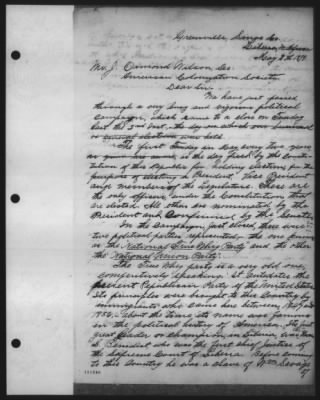 Greenville, Sinoe Co.
Liberia, W. Africa
May 8th, 189
Mr. J. Ormond Wilson, Sec.
American Colonization Society
Dear Sir:
We have just passed
through a very busy and vigorous political
campaign, which came to a close on Tuesday
last the 3rd inst. the day on which our
election was held.
The first Tuesday in May every two years
is the day fixed by the Consti-
tution of this Republic for holding elections, for the
purpose of electing a President, Vice President
and members of the Legislature. These are
the only officers, under the Constitution, that
are elected. All others are nominated by the
President and confirmed by the Senate.
In the Campaign, just closed, there were
two political parties represented, the one known
as the National True Whig Party and the other
the National Union Party.
The True Whig party is a very old one,
comparatively speaking. It antedates the
present Republican Party of the United States.
Its principles were brought to this Country by
immigrants who came here between 18 and
1850. About the time its name was famous
in the political history of America. Its first
great leader or champion in Liberia was Hon.
S. Benedict who was the first Chief Justice of
the Supreme Court of Liberia. Before coming
to this Country he was a slave of Wm Savage
of